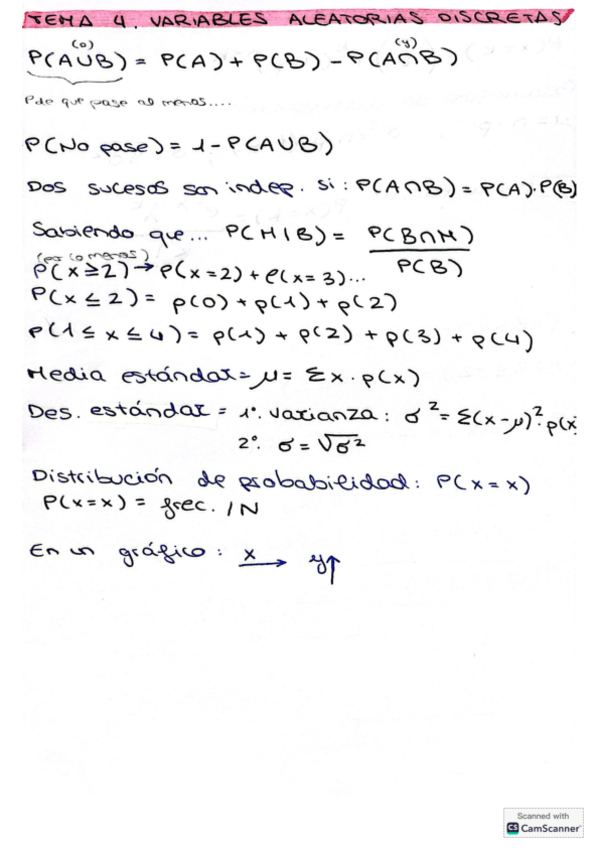 TEMA 4. VARIABLES ALEATORIAS DISCRETAS
(o) (y)
P(A∪B) = P(A) + P(B) - P(A∩B)
P de que pase al menos....
P(No pase) = 1 - P(A∪B)
Dos sucesos son indep. si: P(A∩B) = P(A)·P(B)
Sabiendo que... P(M|B) = P(B∩M) / P(B)
(por lo menos)
P(x≥2) → P(x=2) + P(x=3)...
P(x≤2) = p(0) + p(1) + p(2)
p(1≤x≤4) = p(1) + p(2) + p(3) + p(4)
Media estándar = μ = Σx·p(x)
Des. estándar = 1º. varianza: σ² = Σ(x-μ)²·p(x)
2º. σ = √σ²
Distribución de probabilidad: P(x=x)
P(x=x) = frec. / N
En un gráfico: x → y↑
Scanned with
CS CamScanner